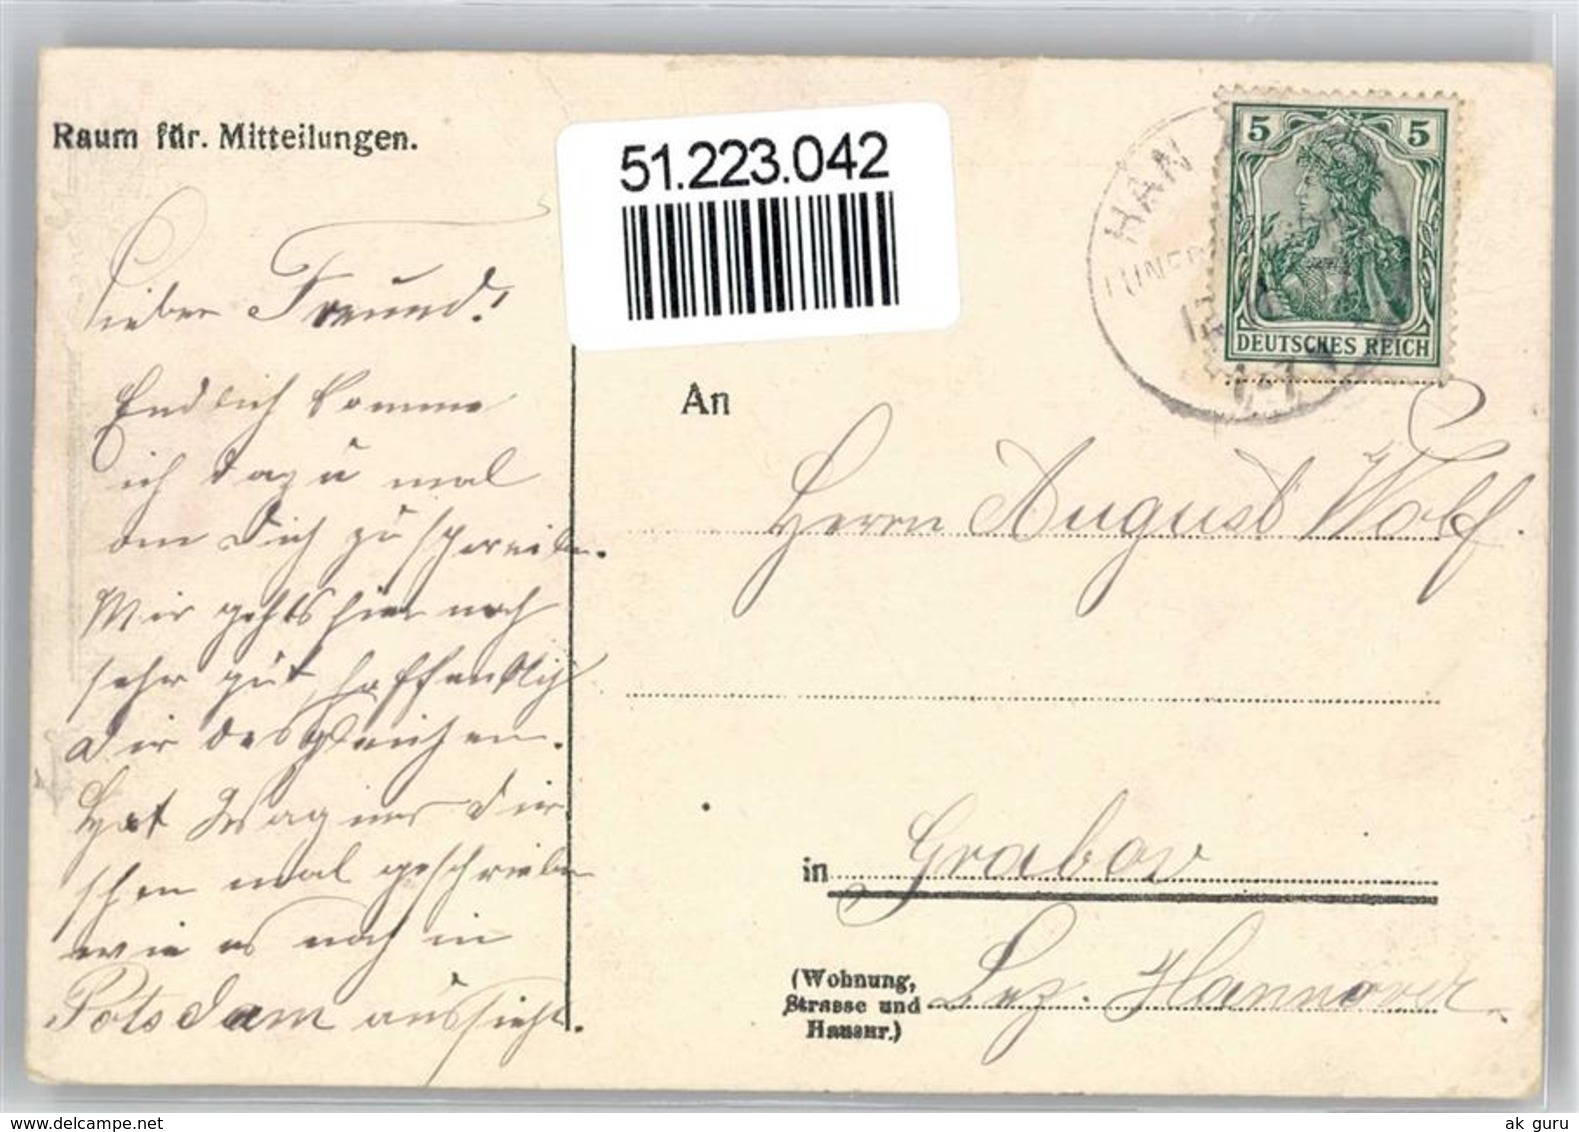 Raum für. Mitteilungen.
51.223.042
Lieber Freund!
Endlich komme
ich dazu mal
an Dich zu schreiben.
Mir gehts hier noch
sehr gut, hoffentlich
Dir desgleichen.
Hat Wagner Dir
schon mal geschrieben
wie es noch in
Potsdam aussieht.
HAN
5 5
DEUTSCHES REICH
An
Herrn August Wolf.
in Grabow
(Wohnung,
Strasse und
Hausnr.)
Bez. Hannover.
ak guru